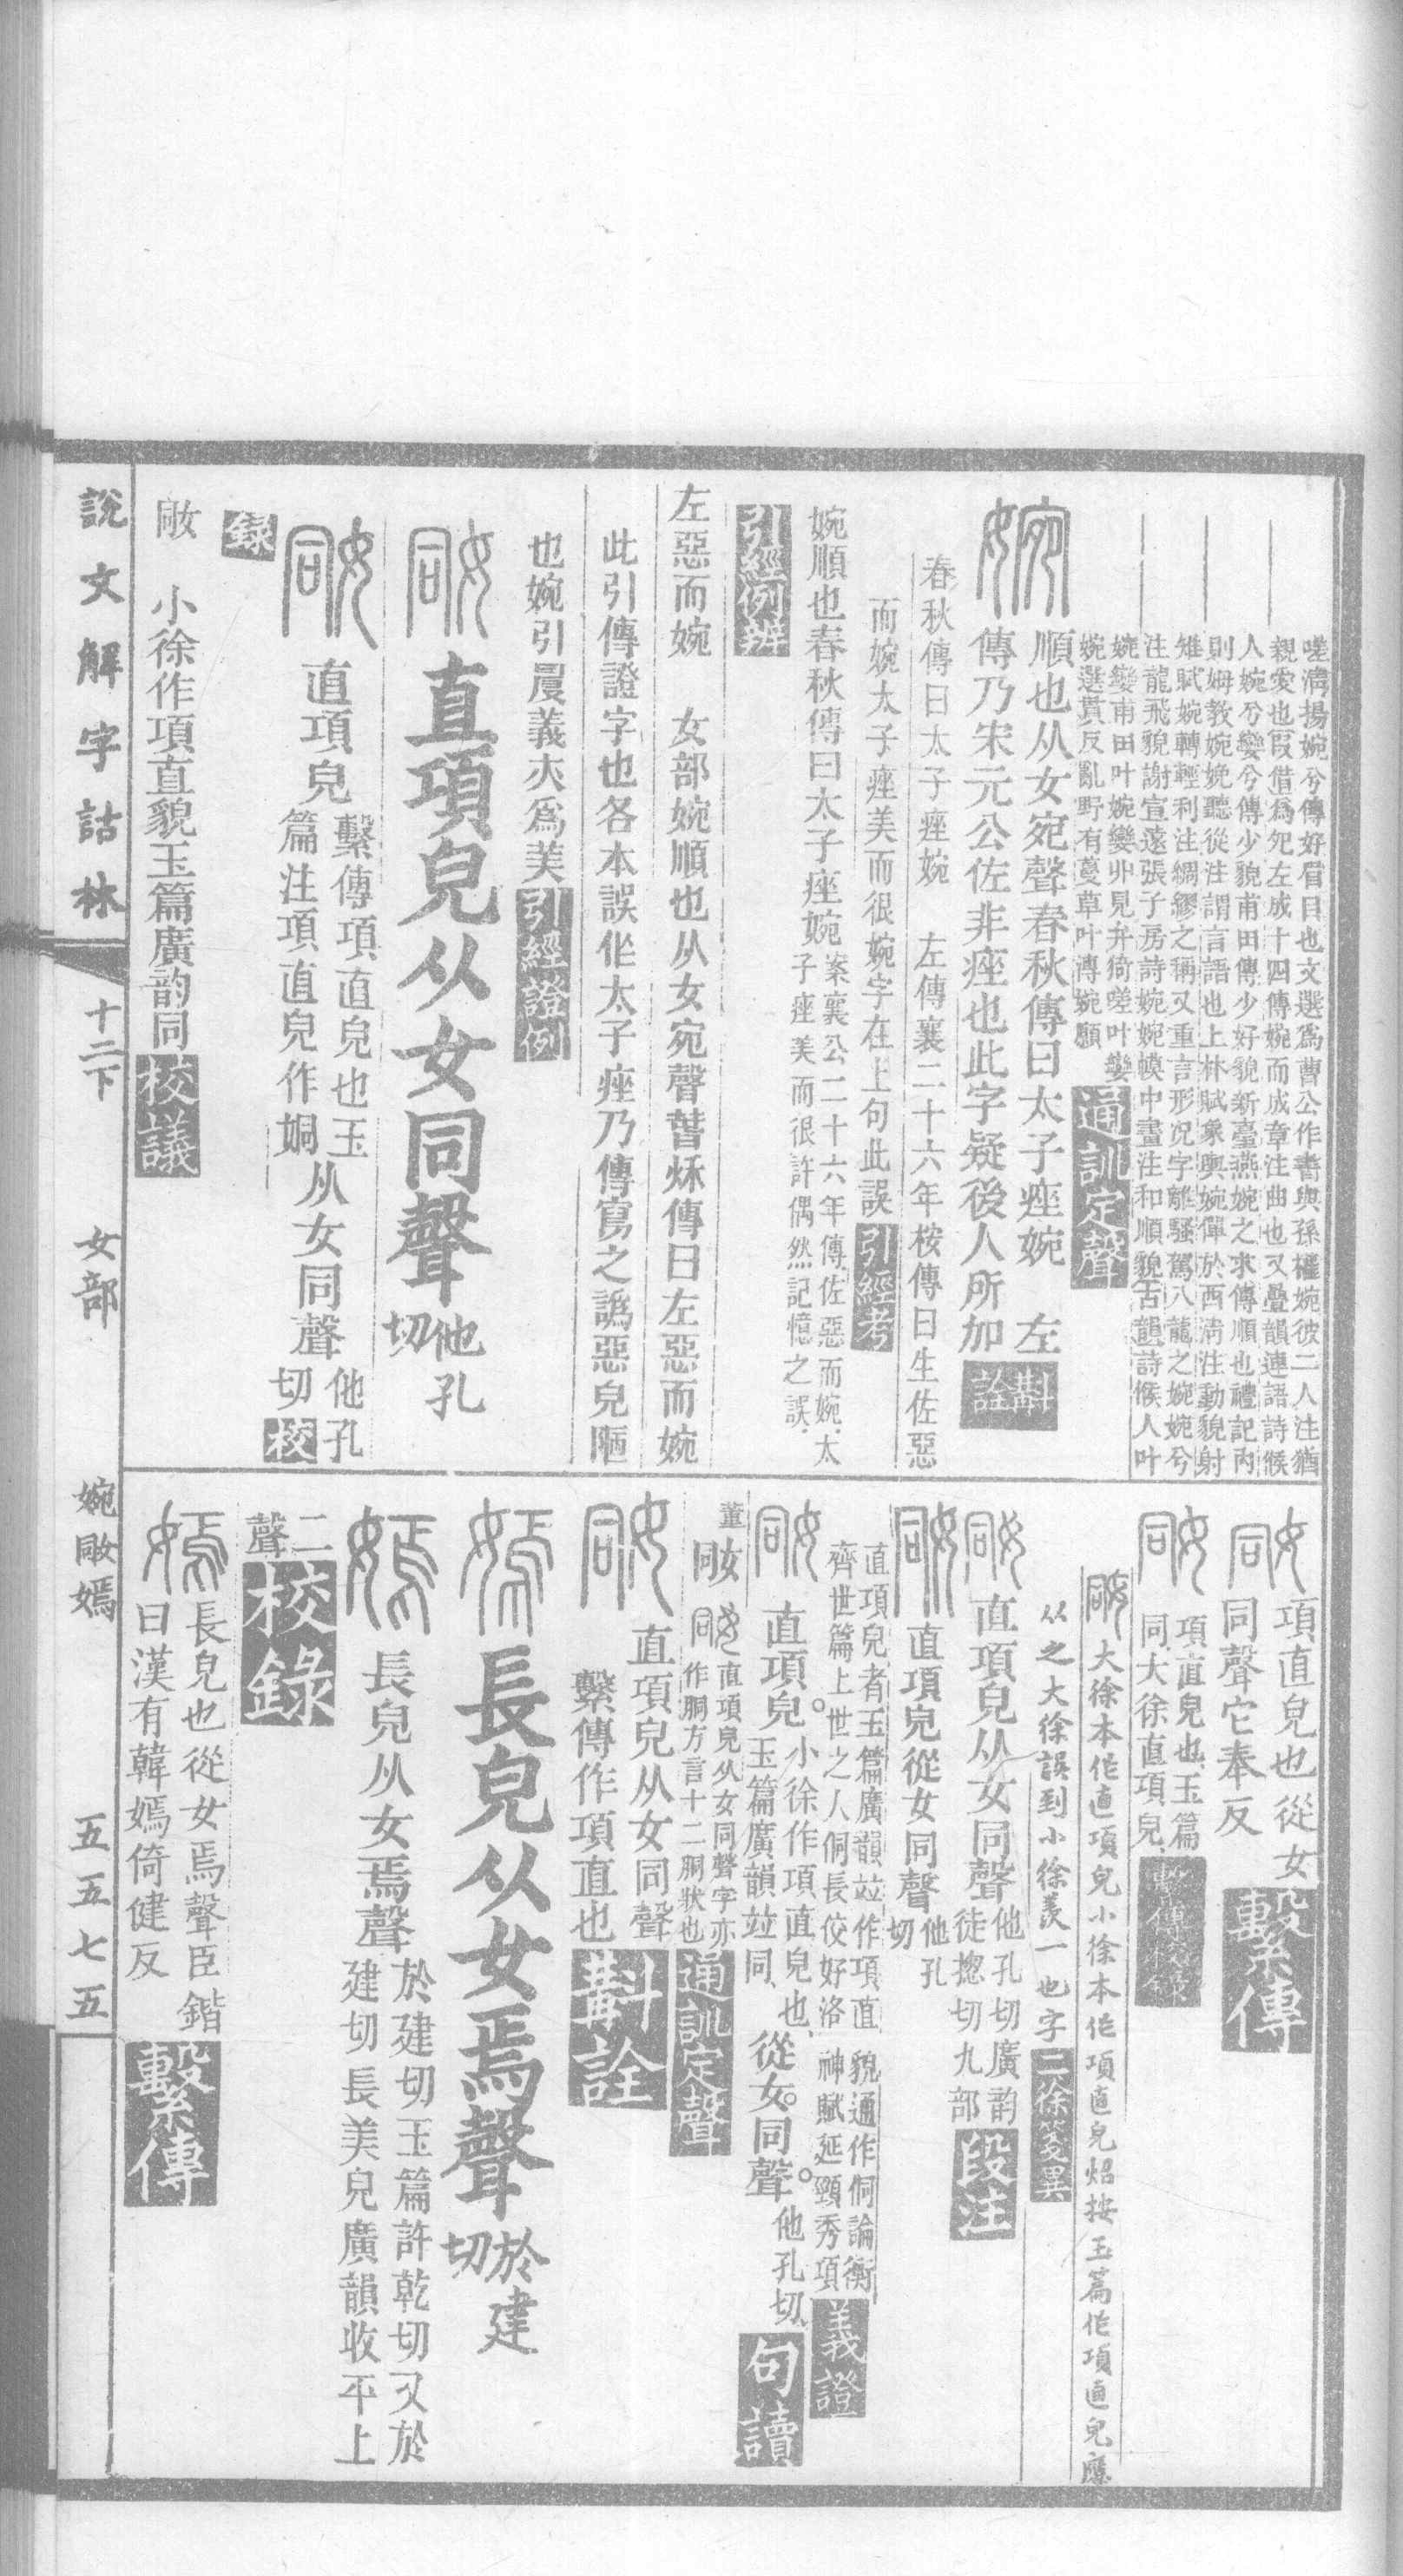 嗟淸揚婉兮傳好眉目也文選爲曹公作書與孫權婉彼二人注猶
親愛也叚借爲夗左成十四傳婉而成章注曲也又疊韻連語詩候
人婉兮孌兮傳少貌甫田傳少好貌新臺燕婉之求傳順也禮記內
則姆敎婉娩聽從注謂言語也上林賦象輿婉僤於西淸注動貌射
雉賦婉轉輕利注綢繆之稱又重言形况字離騷駕八龍之婉婉兮
注龍飛貌謝宣遠張子房詩婉婉幙中畫注和順貌古韻詩候人叶
婉孌甫田叶婉孌丱見弁猗嗟叶孌
婉選貫反亂野有蔓草叶漙婉願
通訓定聲
順也从女宛聲春秋傳曰太子痤婉 左
傳乃宋元公佐非痤也此字疑後人所加
斠詮
春秋傳曰太子痤婉 左傳襄二十六年桉傳曰生佐惡
而婉太子痤美而很婉字在上句此誤
引經考
婉順也春秋傳曰太子痤婉
案襄公二十六年傳佐惡而婉太
子痤美而很許偶然記憶之誤
引經例辨
左惡而婉 女部婉順也从女宛聲萅秌傳曰左惡而婉
此引傳證字也各本誤作太子痤乃傳寫之譌惡皃陋
也婉引㞡義夾爲美
引經證例
直項皃从女同聲
他孔切
直項皃
繫傳項直皃也玉
篇注項直皃作姛
从女同聲
他孔切
校錄
㛚 小徐作項直貌玉篇廣韵同
校議
項直皃也從女
同聲它奉反
繫傳
項直皃也玉篇
同大徐直項皃
繫傳校錄
大徐本作直項皃小徐本作項直皃炤按玉篇作項直皃應
从之大徐誤到小徐羨一也字
二徐箋異
直項皃从女同聲
他孔切廣韵
徒摠切九部
段注
直項皃從女同聲
他孔切
直項皃者玉篇廣韻竝作項直貌通作侗論衡
齊世篇上世之人侗長佼好洛神賦延頸秀項
義證
直項皃
小徐作項直皃也
玉篇廣韻竝同
從女同聲
他孔切
句讀
董
直項皃从女同聲字亦
作胴方言十二胴狀也
通訓定聲
直項皃从女同聲
繫傳作項直也
斠詮
長皃从女焉聲
於建切
長皃从女焉聲
於建切玉篇許乾切又於
建切長美皃廣韻收平上
二聲
校錄
長皃也從女焉聲臣鍇
曰漢有韓嫣倚健反
繫傳
說文解字詁林
十二下
女部
婉㛚嫣
五五七五